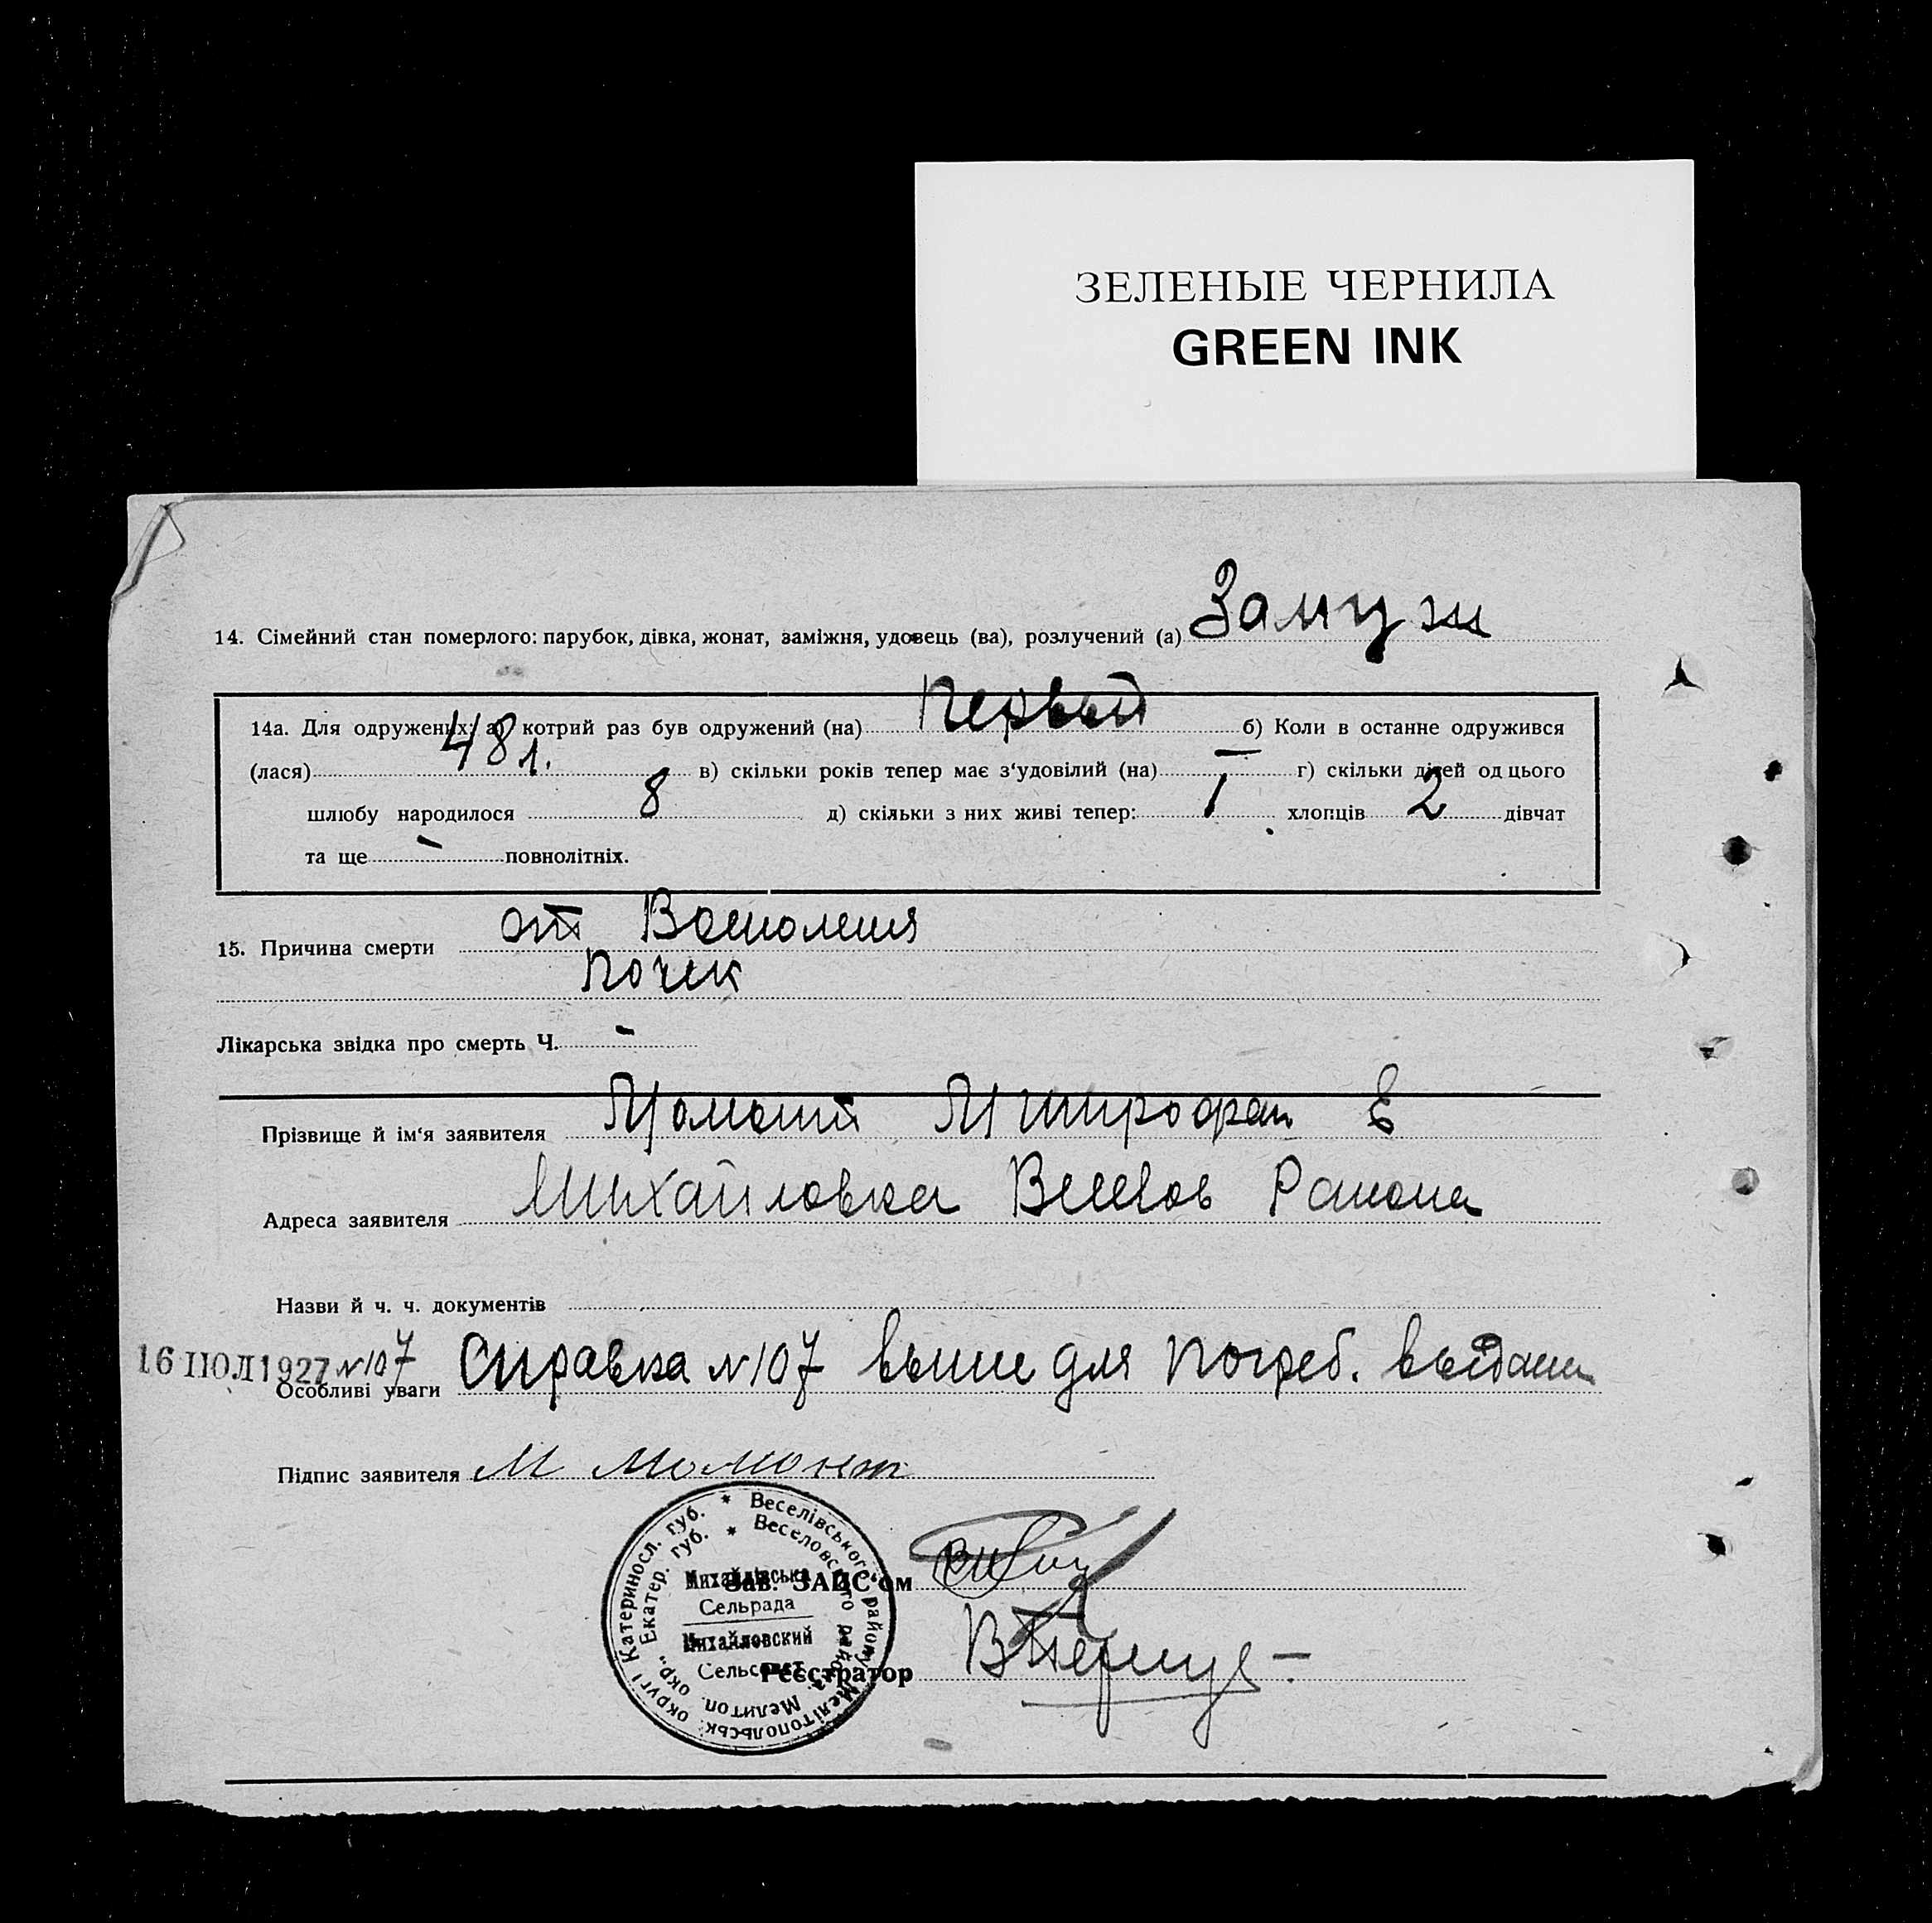 ЗЕЛЕНЫЕ ЧЕРНИЛА
GREEN INK
14. Сімейний стан померлого: парубок, дівка, жонат, заміжня, удовець (ва), розлучений (а) Замуж
14а. Для одружених: а) котрий раз був одружений (на) первый б) Коли в останнє одружився
(лася) 48 л. в) скільки років тепер має з‘удовілий (на) — г) скільки дітей од цього
шлюбу народилося 8 д) скільки з них живі тепер: 1 хлопців 2 дівчат
та ще - повнолітніх.
15. Причина смерти от
почек
Лікарська звідка про смерть Ч. -
Прізвище й ім‘я заявителя Момонт Митрофан Е
Адреса заявителя Михайловка Весел Района
Назви й ч. ч. документів
16 ІЮЛ 1927 N107
Особливі уваги Справка N107 выше для погреб. выдана
Підпис заявителя М Момонт
Зав. ЗАПС‘ом
Реєстратор
Катериносл. губ. * Веселівського району Мелітопольськ. округі
Екатер. губ. * Веселовского района Мелитоп. окр.
Михайлівська
Сельрада
Михайловский
Сельсовет